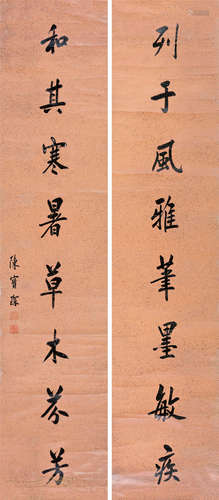 列于風雅筆墨敏疾
和其寒暑草木芬芳
陳寶琛